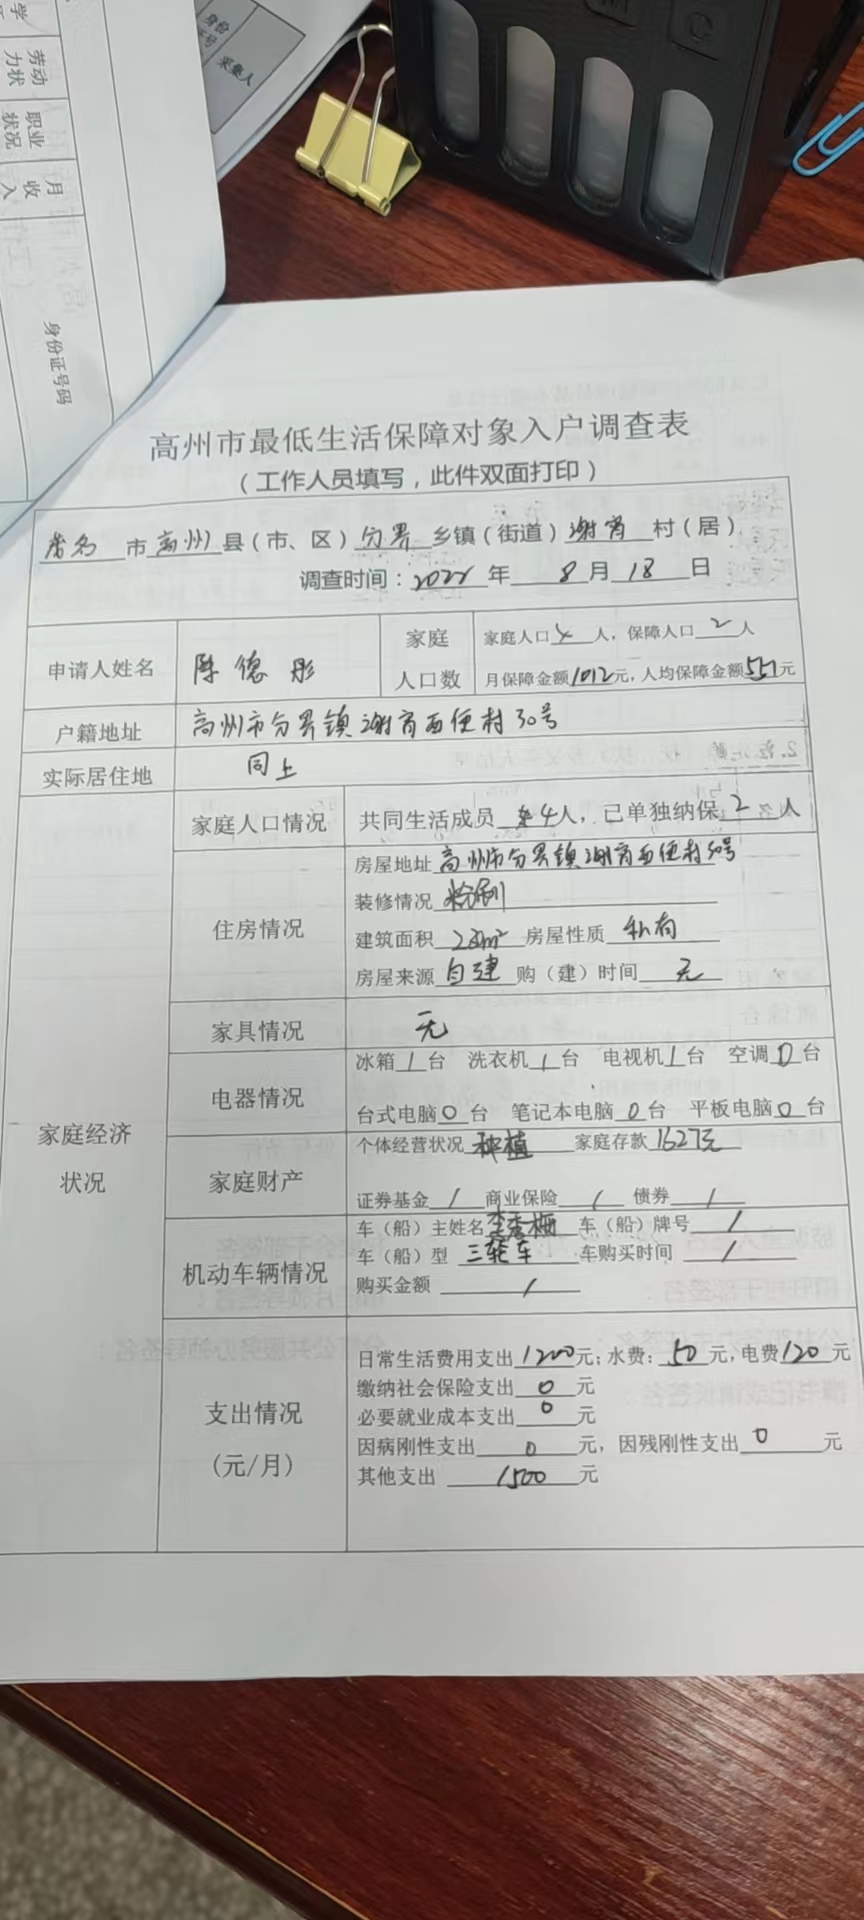 学
劳动
力状
职业
状况
月收入
身份证号码
身份
证号
采集人
高州市最低生活保障对象入户调查表
（工作人员填写，此件双面打印）
茂名 市 高州 县（市、区） 分界 乡镇（街道） 谢 村（居）
调查时间： 年 8 月 18 日
申请人姓名 陈德彤 家庭人口数 家庭人口 4 人，保障人口 2 人
月保障金额 1012 元，人均保障金额 元
户籍地址 高州市分界镇谢 村30号
实际居住地 同上
家庭经济状况
家庭人口情况 共同生活成员 4 人，已单独纳保 2 人
住房情况 房屋地址 高州市分界镇谢 村30号
装修情况 粉刷
建筑面积 m² 房屋性质 私有
房屋来源 自建 购（建）时间 无
家具情况 无
电器情况 冰箱 1 台 洗衣机 1 台 电视机 1 台 空调 0 台
台式电脑 0 台 笔记本电脑 0 台 平板电脑 0 台
家庭财产 个体经营状况 种植 家庭存款 1627元
证券基金 / 商业保险 / 债券 /
机动车辆情况 车（船）主姓名 李秀 车（船）牌号 /
车（船）型 三轮车 车购买时间 /
购买金额 /
支出情况
(元/月)
日常生活费用支出 1200 元；水费： 50 元，电费 120 元
缴纳社会保险支出 0 元
必要就业成本支出 0 元
因病刚性支出 0 元，因残刚性支出 0 元
其他支出 1500 元